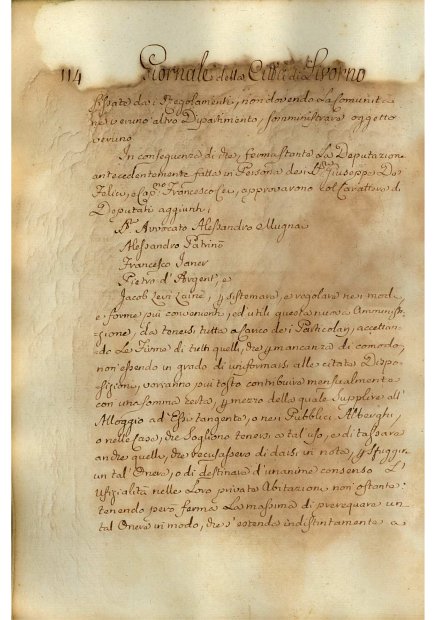 114 Giornale della Città di Livorno
fissate da i Regolamenti, non dovendo la Comunità
ne veruno altro Dipartimento, somministrare oggetto
veruno
In conseguenza di che, ferma stante la Deputazione
antecedentemente fatta in Persona dei SS.ri Giuseppe De
Felici, e Cap.o Francesco Leu, approvarono col Carattere di
Deputati aggiunti,
Sr. Avvocato Alessandro Mugnai
Alessandro Patrinò
Francesco Janer
Pietro d'Argent, e
Jacob Levi, p sistemare, e regolare nei modi,
e forme più convenienti, ed utili questa nuova Commis-
sione, da tenersi tutta a Carico dei Particolari, accettan-
do le Firme di tutti quelli, che p mancanza di comodo,
non essendo in grado di uniformarsi alle citate Dispo-
sizioni, vorranno piutosto contribuire mensualmente
con una somma certa, p mezzo della quale supplire all'
Alloggio ad Essi tangente, o nei Pubblici Alberghi,
o nelle Case, che sogliono tenersi a tal uso, e di tassare
anche quelli, che recusassero di darsi in nota, p sfuggire
un tal Onere, o di destinare d'unanime consenso l'
Ufizialità nelle Loro private Abitazioni non ostante:
tenendo però ferma la massima di perequare un
tal Onere in modo, che s'estenda indistintamente a